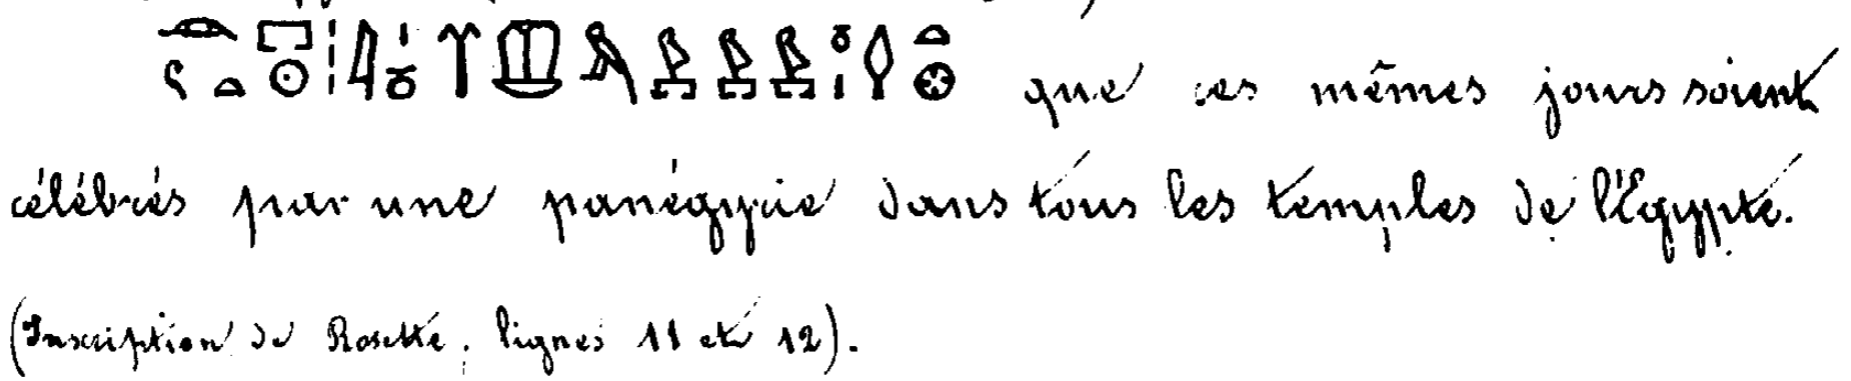 que ces mêmes jours soient
célébrés par une panégyrie dans tous les temples de l'Égypte.
(Inscription de Rosette, lignes 11 et 12).